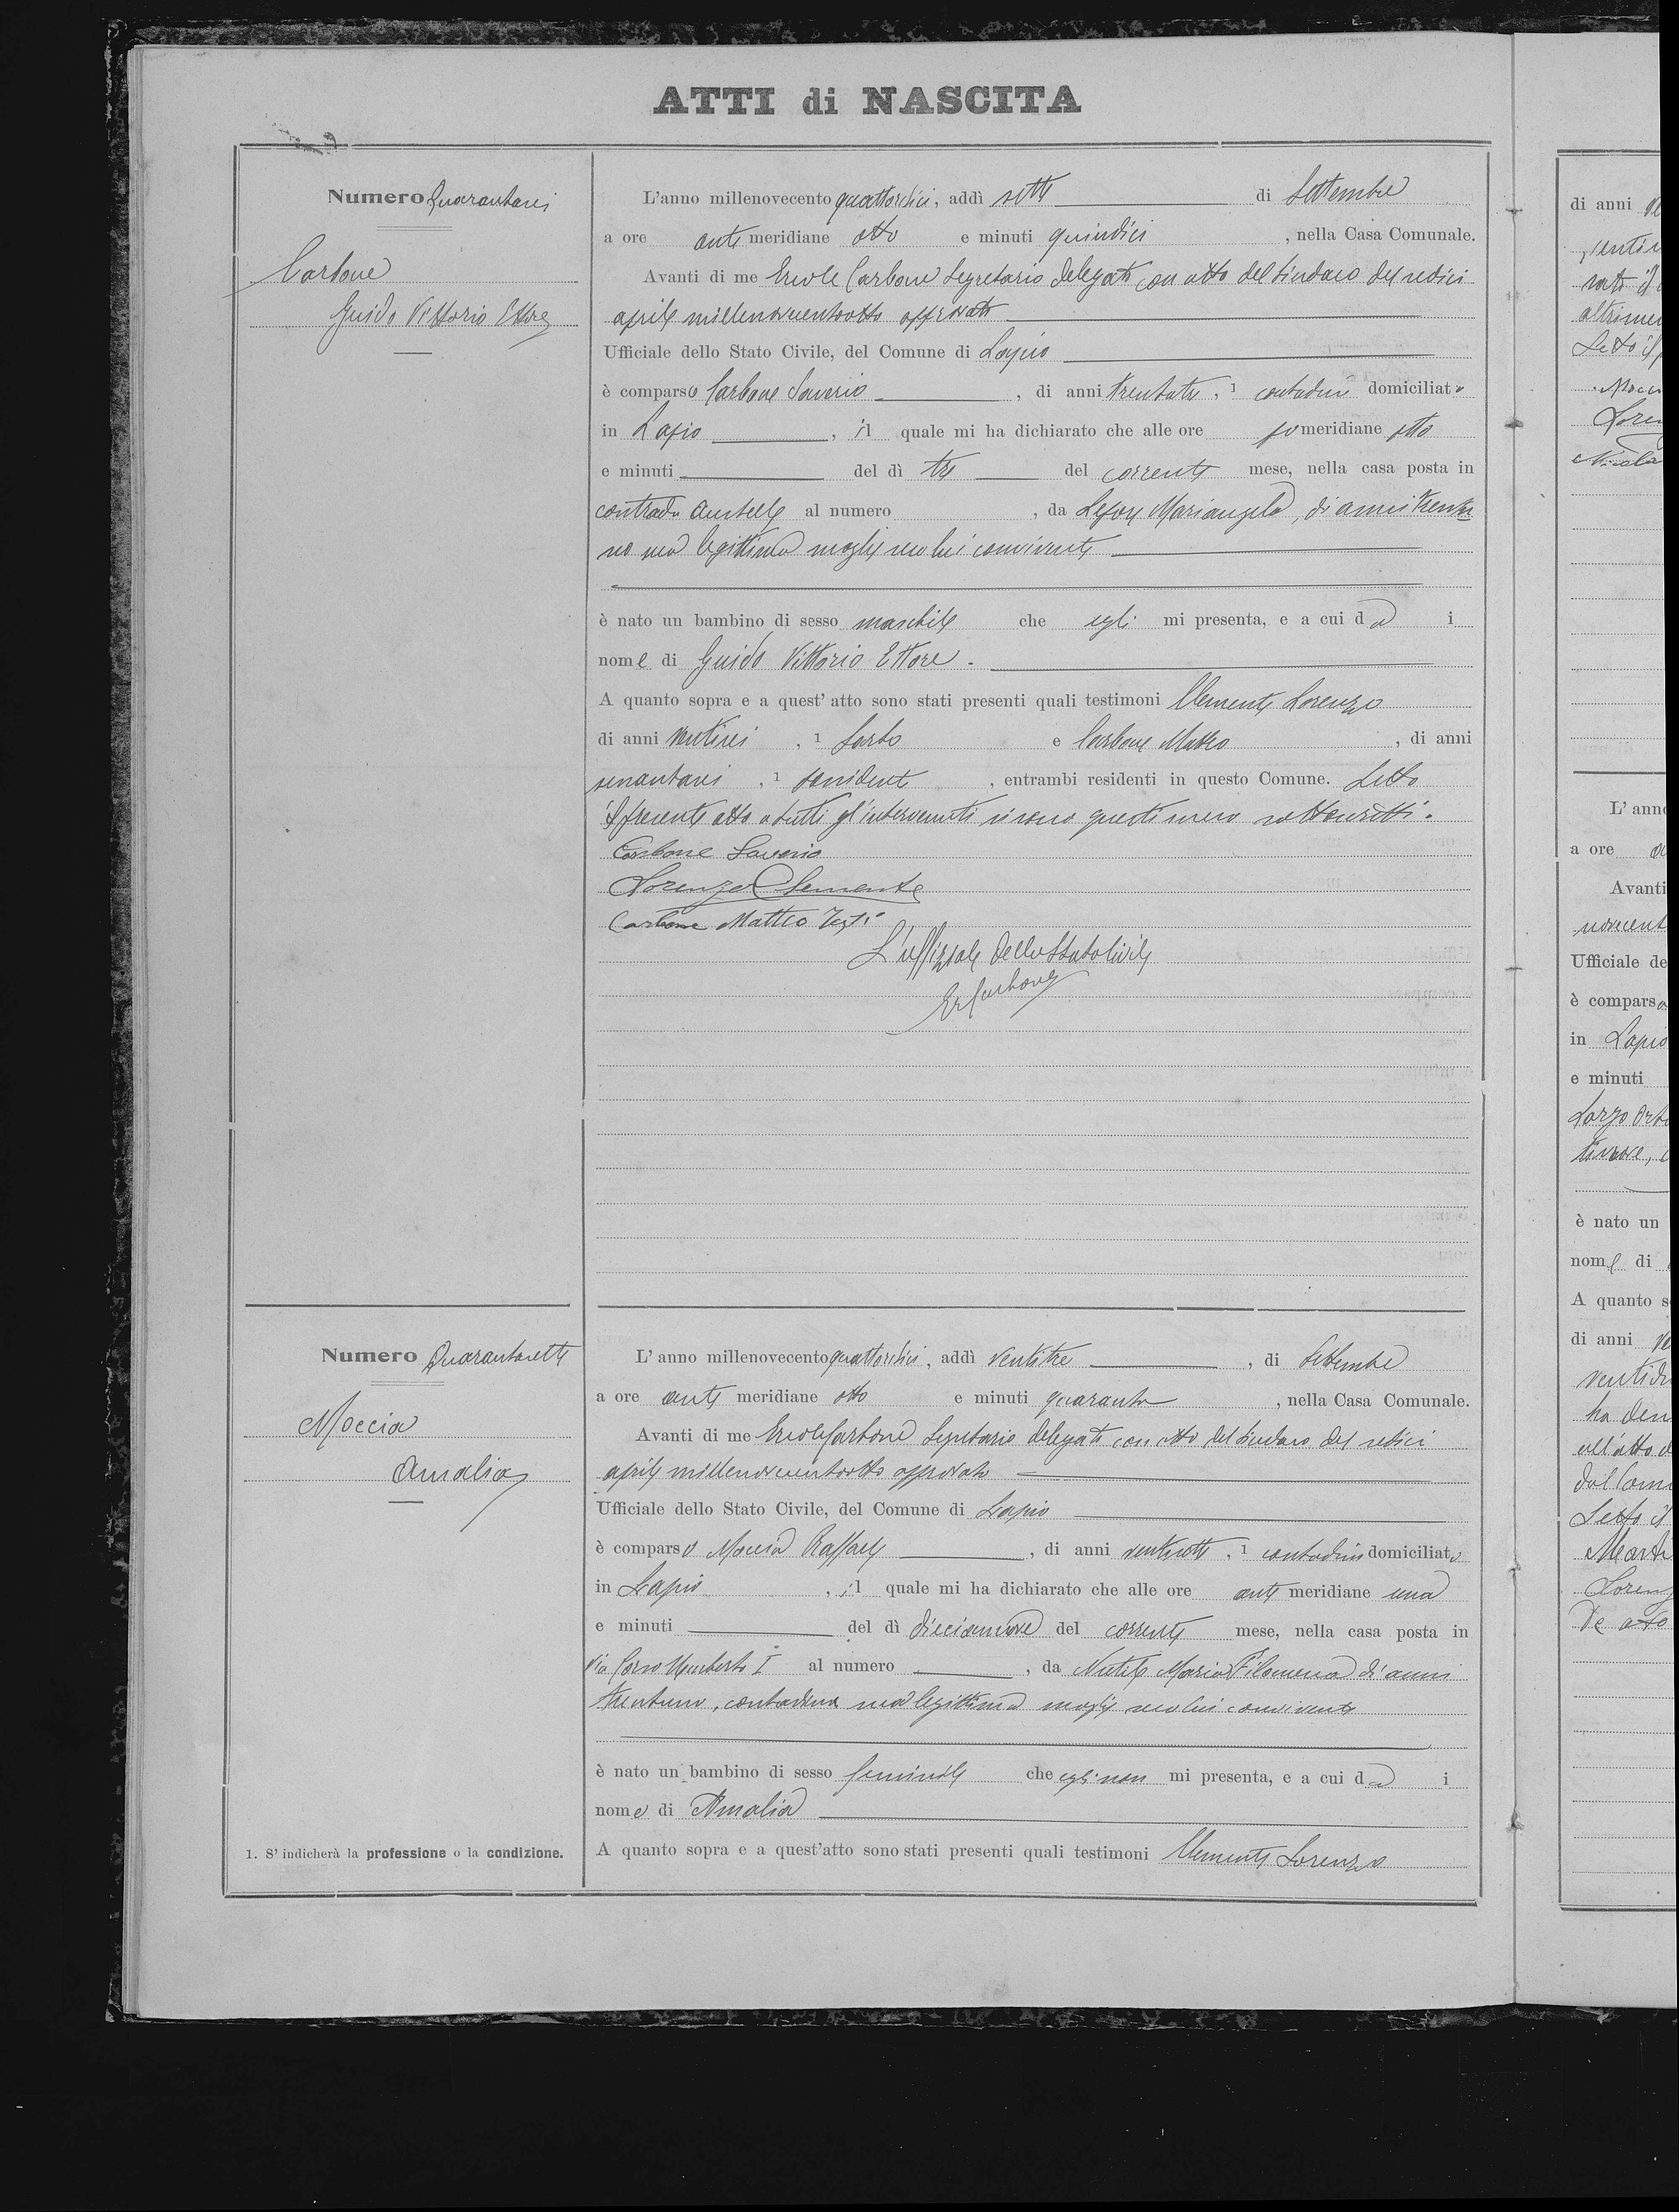 ATTI di NASCITA
Numero Quarantasei
Carbone
Guido Vittorio Ettore
L'anno millenovecento quattordici, addì sette di Settembre
a ore anti meridiane otto e minuti quindici, nella Casa Comunale.
Avanti di me Ercole Carbone Segretario delegato con atto del Sindaco del sedici
aprile millenovecentootto approvato
Ufficiale dello Stato Civile, del Comune di Lapio
è comparso Carbone Saverio, di anni trentatre, 1 contadino domiciliato
in Lapio, il quale mi ha dichiarato che alle ore po meridiane otto
e minuti del dì tre del corrente mese, nella casa posta in
contrada al numero, da Mariangela, di anni trentu
no sua legittima moglie seco lui convivente
è nato un bambino di sesso maschile che egli mi presenta, e a cui dà i
nome di Guido Vittorio Ettore.
A quanto sopra e a quest'atto sono stati presenti quali testimoni Clemente Lorenzo
di anni ventisei, 1 sarto e Carbone Matteo, di anni
sessantasei, 1 possidente, entrambi residenti in questo Comune. Letto
il presente atto a tutti gl'intervenuti si sono questi meco sottoscritti.
Carbone Saverio
Lorenzo Clemente
Carbone Matteo Testi
L'uffiziale dello Stato Civile
Er Carbone
Numero Quarantasette
Moccia
Amalia
L'anno millenovecento quattordici, addì ventitre, di Settembre
a ore anti meridiane otto e minuti quaranta, nella Casa Comunale.
Avanti di me Ercole Carbone Segretario delegato con atto del Sindaco del sedici
aprile millenovecentootto approvato
Ufficiale dello Stato Civile, del Comune di Lapio
è comparso Moccia Raffaele, di anni ventisette, 1 contadino domiciliato
in Lapio, il quale mi ha dichiarato che alle ore anti meridiane una
e minuti del dì diecianove del corrente mese, nella casa posta in
Via Corso Umberto I al numero, da Nutile Maria Filomena di anni
trentuno, contadina sua legittima moglie seco lui convivente
è nato un bambino di sesso feminile che egli non mi presenta, e a cui dà i
nome di Amalia
A quanto sopra e a quest'atto sono stati presenti quali testimoni Clemente Lorenzo
1. S'indicherà la professione o la condizione.
di anni
altrimen
Letto il p
Nicola
L'anno
a ore
Avanti
novecent
Ufficiale de
è comparso
in Lapio
e minuti
è nato un
nome di
A quanto s
di anni
ha den
all'atto d
dal Com
Letto il
Loren